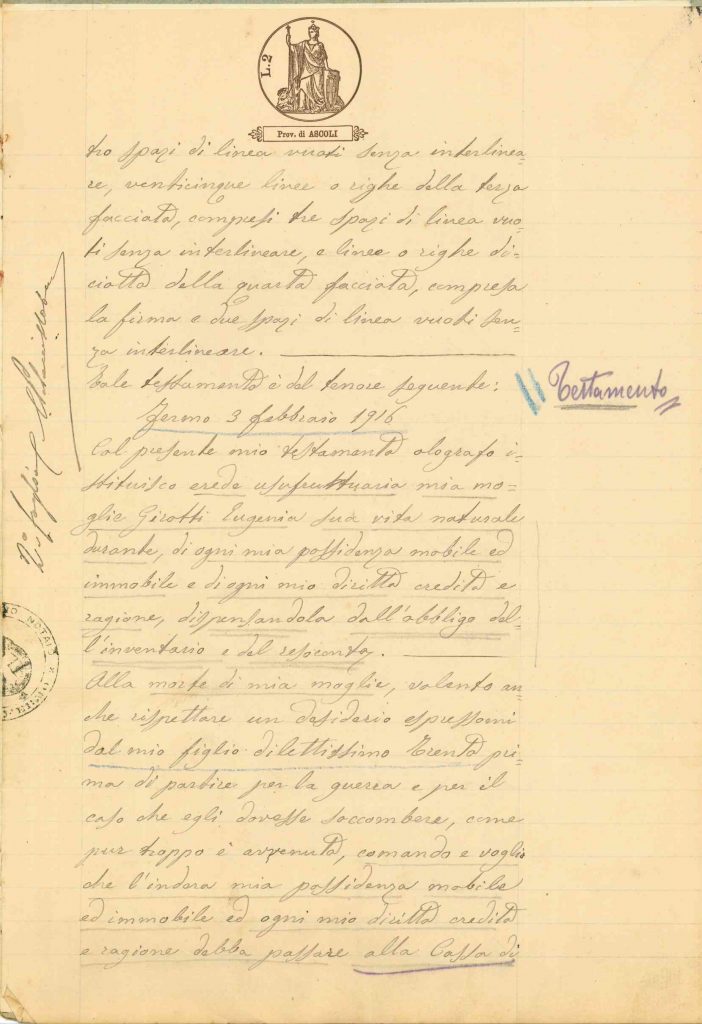 L. 2
Prov. di ASCOLI
tro spazi di linea vuoti senza interlinea=
re, venticinque linee o righe della terza
facciata, compresi tre spazi di linea vuo=
ti senza interlineare, e linee o righe di=
ciotto della quarta facciata, compresa
la firma e due spazi di linea vuoti sen=
za interlineare.
Tale testamento è del tenore seguente:
Testamento
Fermo 3 febbraio 1916
Col presente mio testamento olografo i=
stituisco erede usufruttuaria mia mo=
glie Girotti Eugenia sua vita naturale
durante, di ogni mia possidenza mobile ed
immobile e di ogni mio diritto credito e
ragione, dispensandola dall'obbligo del=
l'inventario e del resoconto.
Alla morte di mia moglie, volento an=
che rispettare un desiderio espressomi
dal mio figlio dilettissimo Trento pri=
ma di partire per la guerra e per il
caso che egli dovesse soccombere, come
pur troppo è avvenuto, comando e voglio
che l'indera mia possidenza mobile
ed immobile ed ogni mio diritto credito
e ragione debba passare alla Cassa di